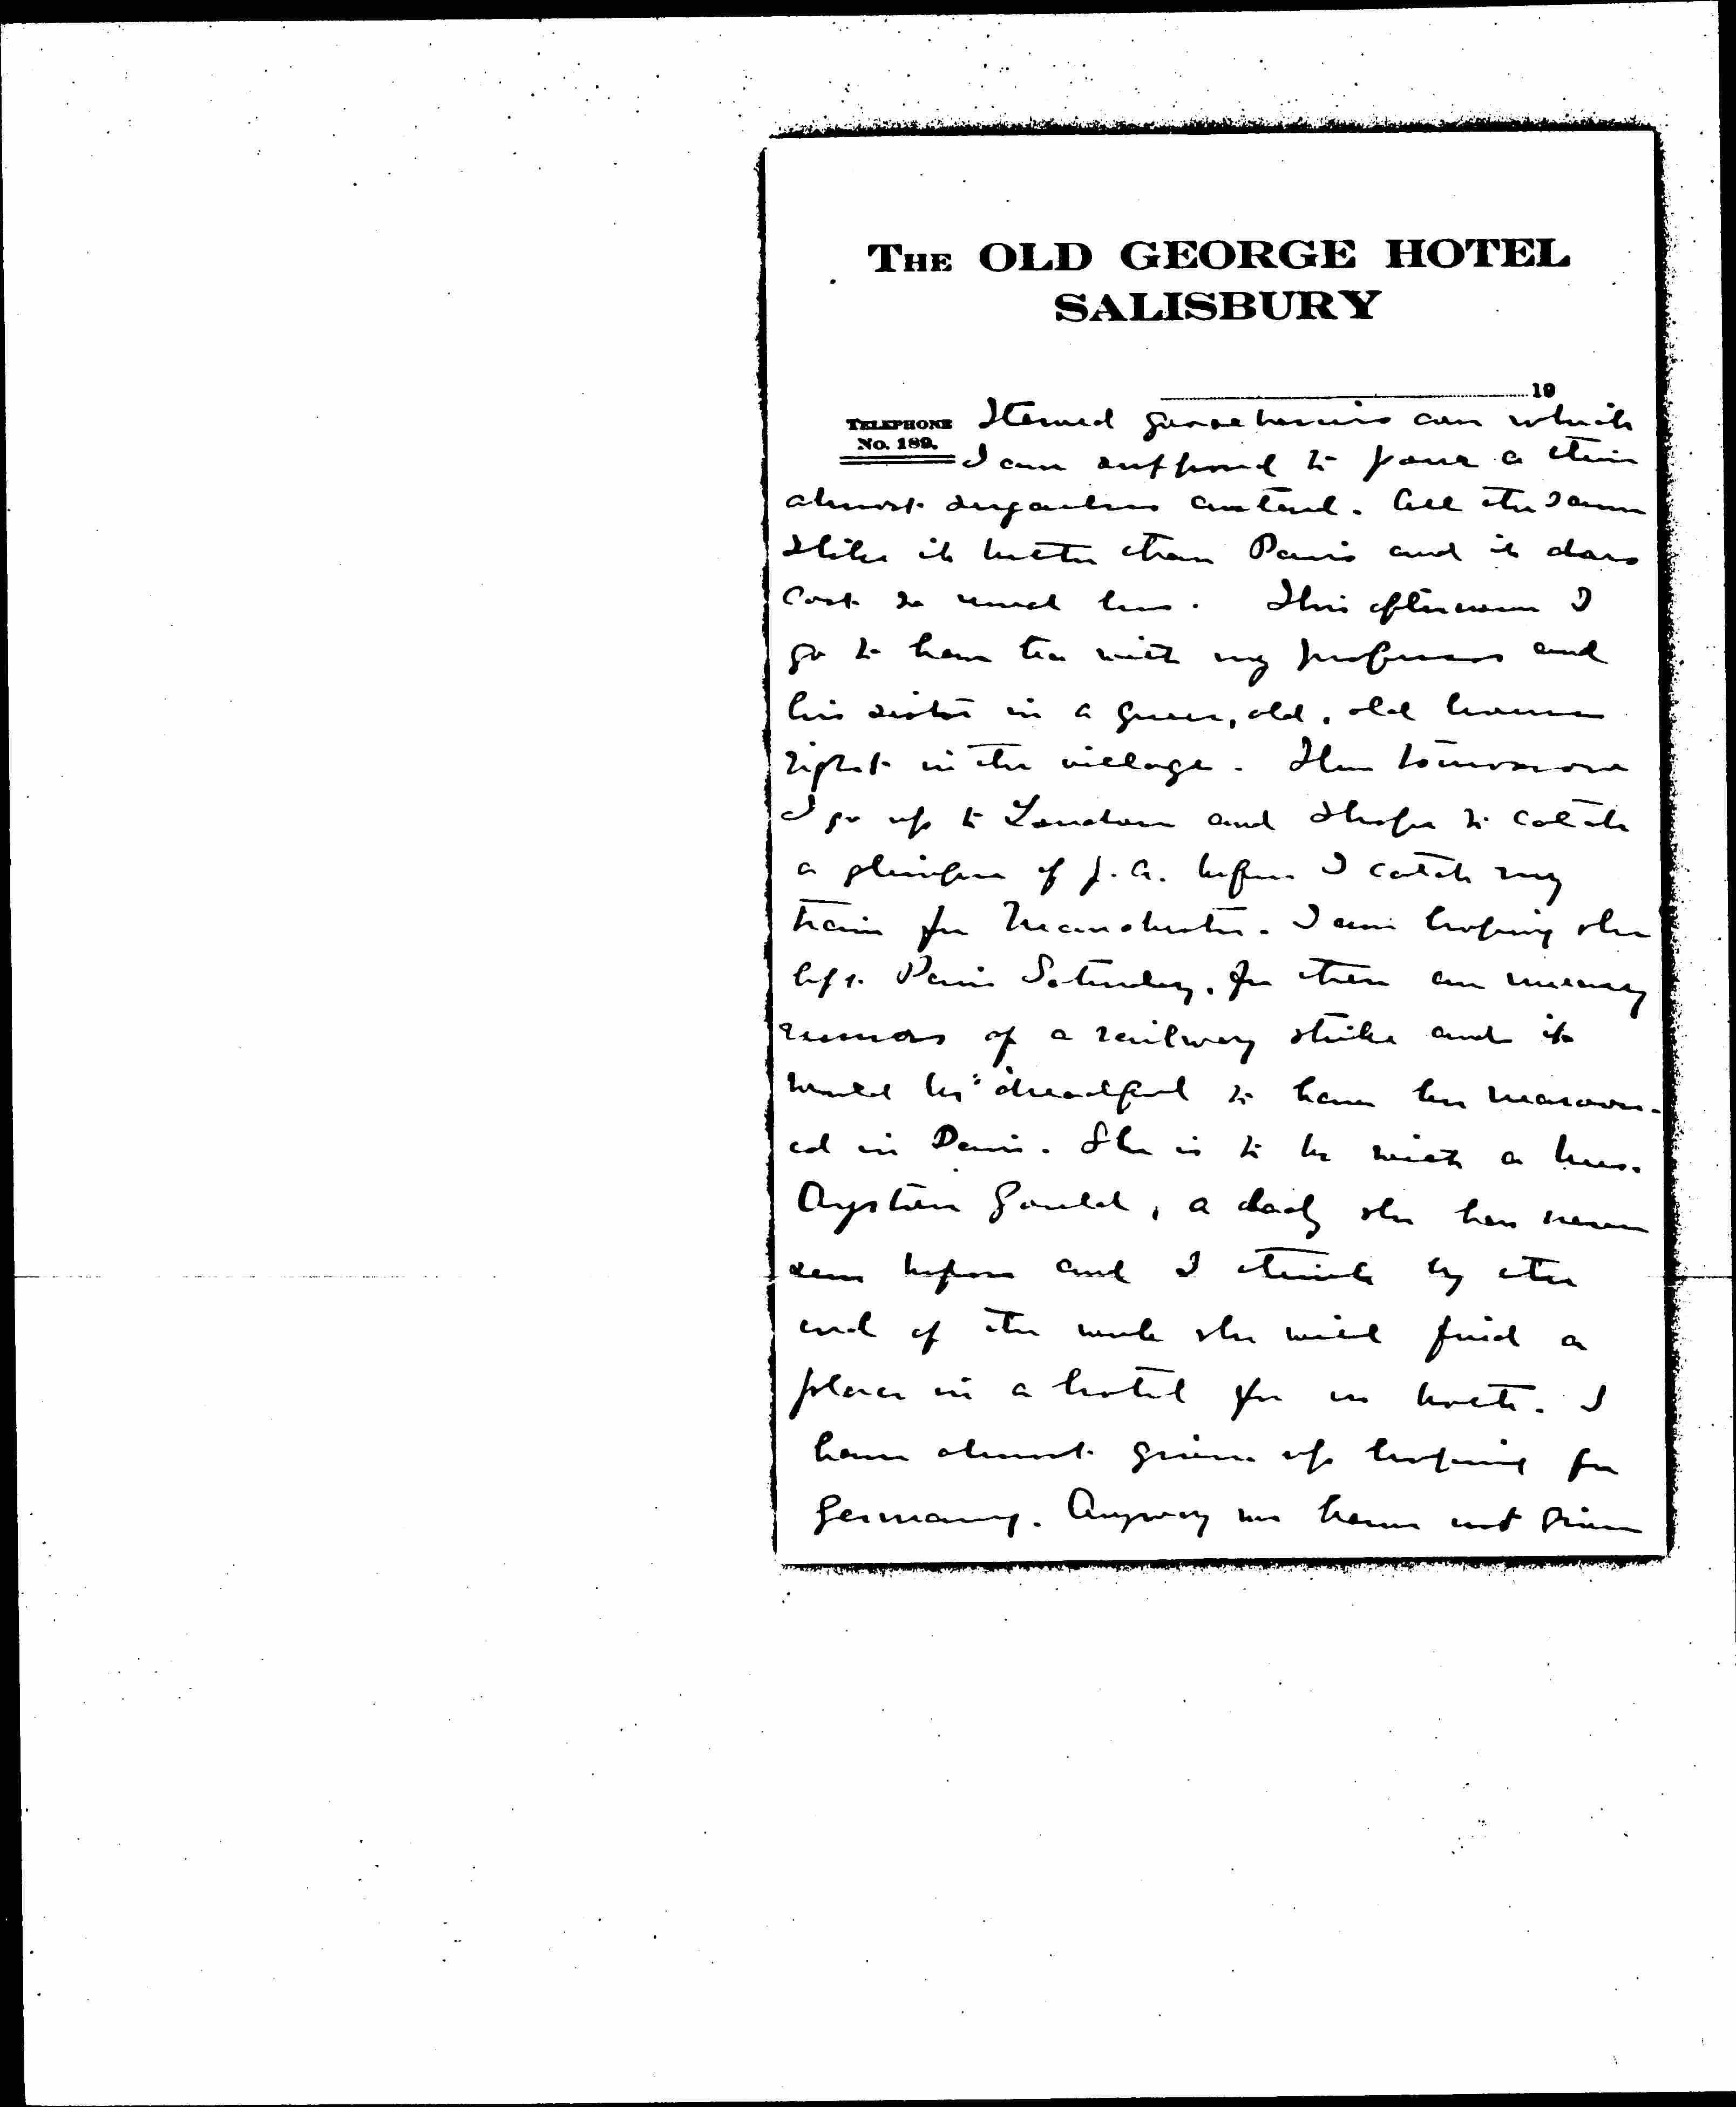 THE OLD GEORGE HOTEL
SALISBURY
19
TELEPHONE
No. 189.
Stewed gooseberries on which
I am supposed to pour a thin
almost sugarless custard. All the same
I like it better than Paris and it does
cost so much less. This afternoon I
go to have tea with my professor and
his sister in a queer, old, old house
right in the village. Then tomorrow
I go up to London and I hope to catch
a glimpse of J. A. before I catch my
train for Manchester. I am hoping she
left Paris Saturday, for there are uneasy
rumors of a railway strike and it
would be dreadful to have her maroon-
ed in Paris. She is to be with a Mrs.
Gould, a lady she has never
seen before and I think by the
end of the week she will find a
place in a hotel for us both. I
have almost given up hoping for
Germany. Anyway we have not given